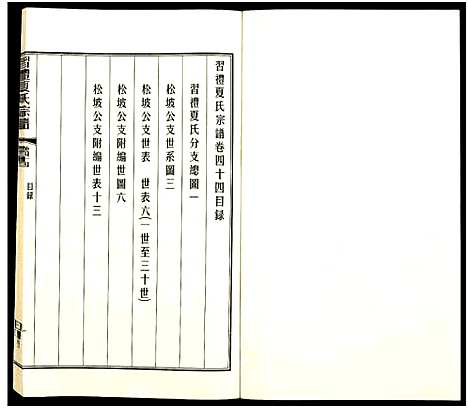 習禮夏氏宗譜卷四十四目録
習禮夏氏分支總圖一
松坡公支世系圖三
松坡公支世表　世表六(一世至三十世)
松坡公支附編世圖六
松坡公支附編世表十三
習禮夏氏宗譜
目録